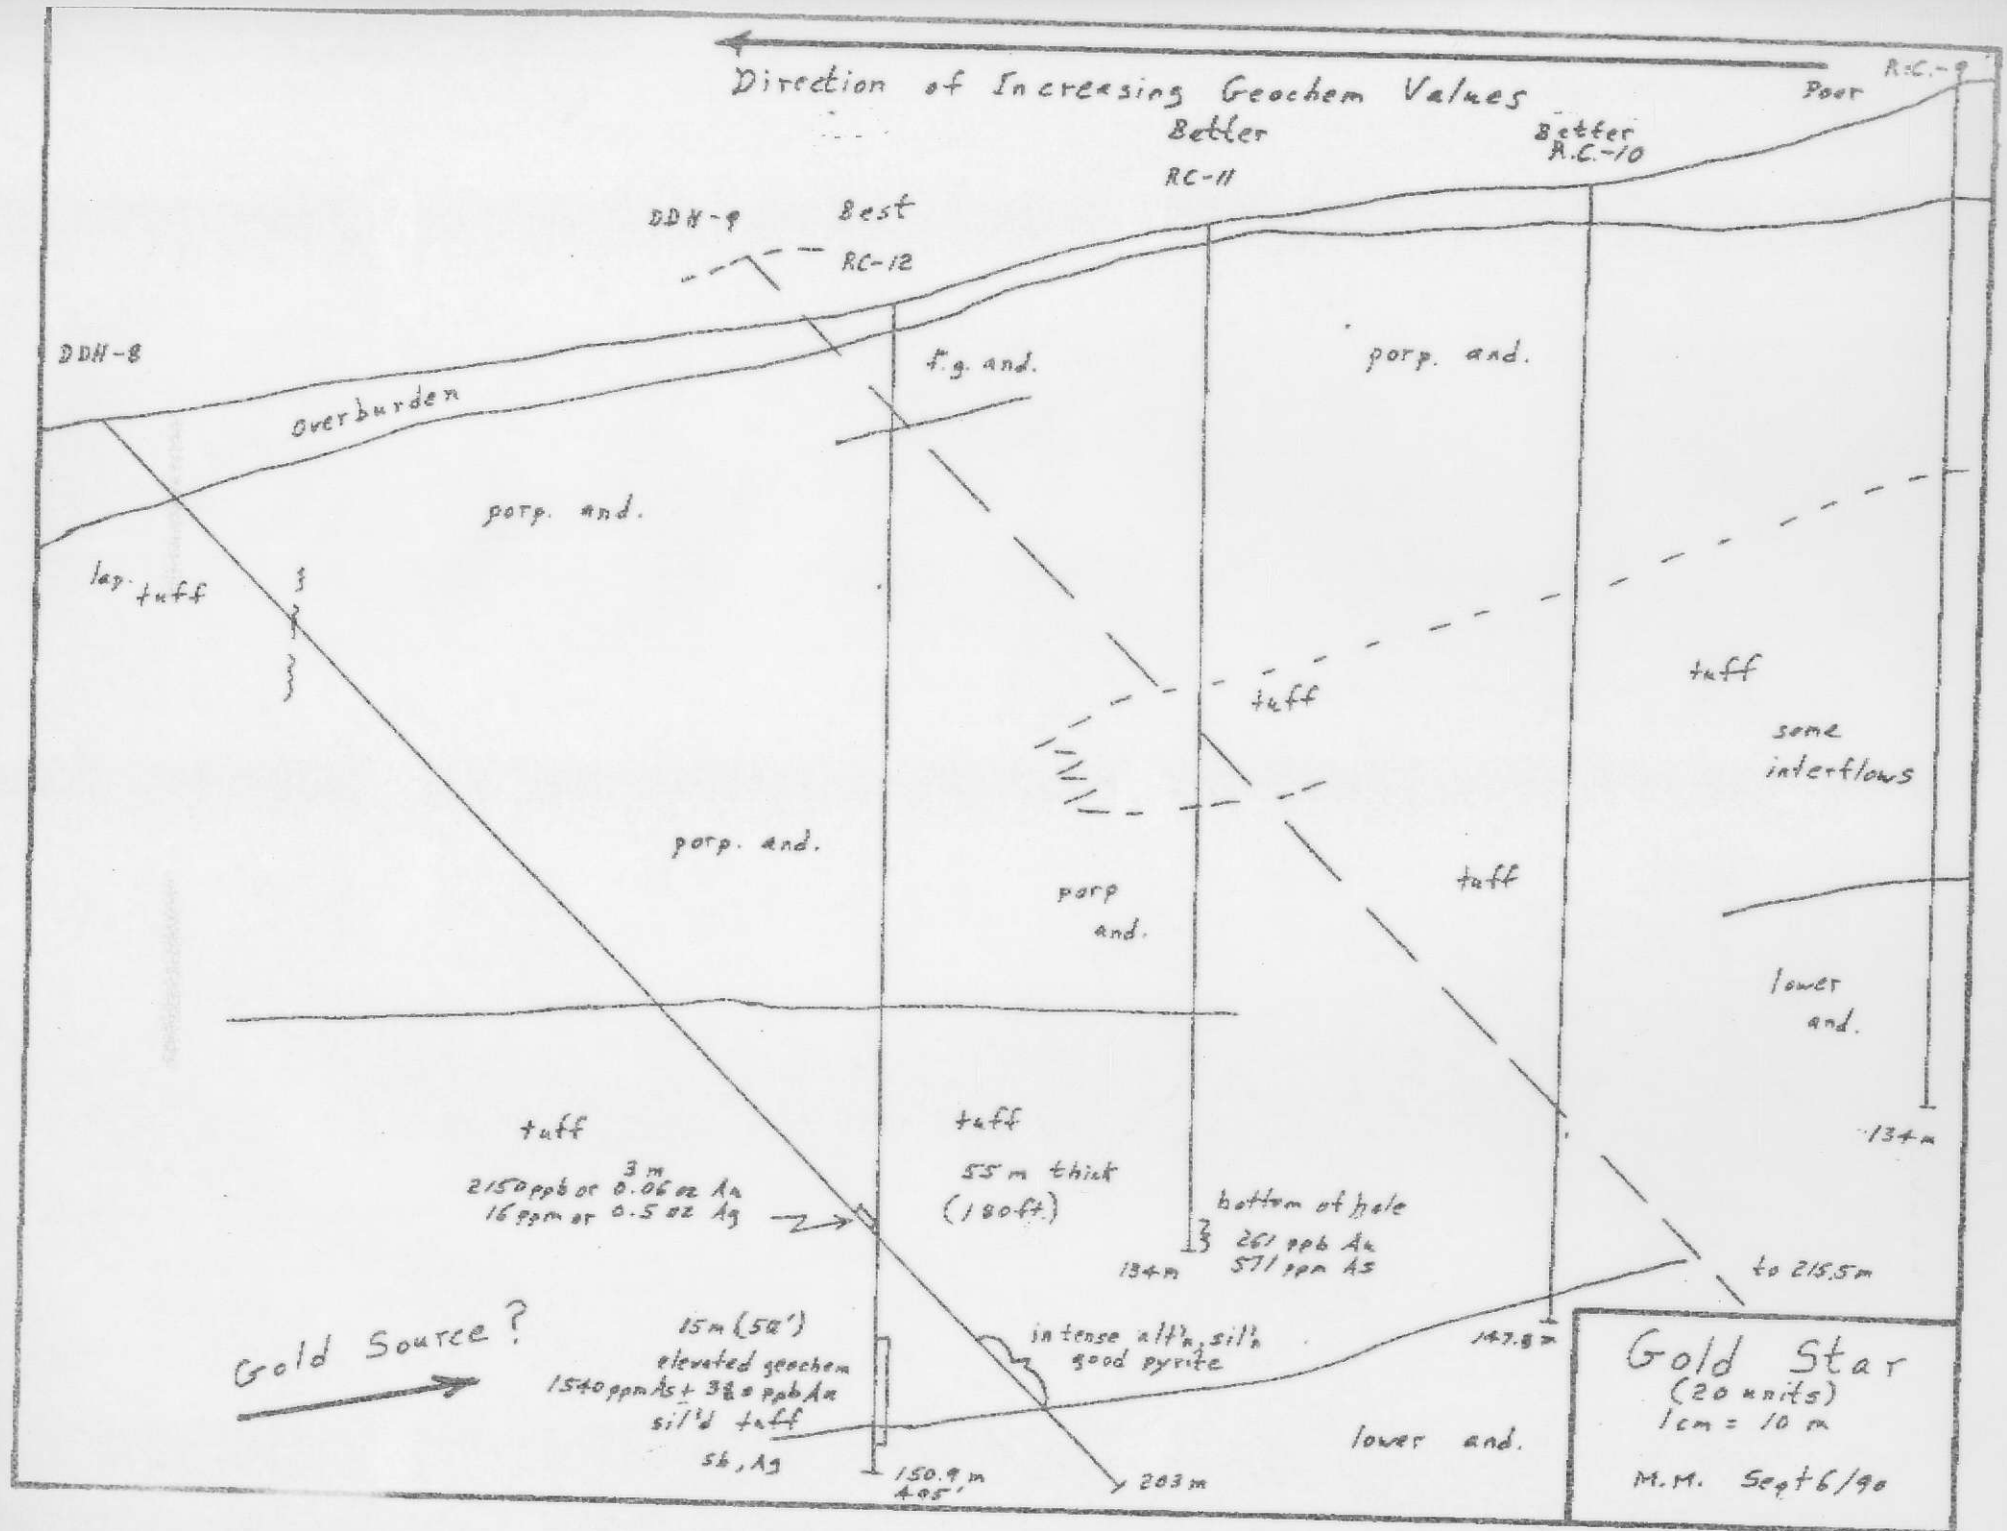 R.C.-9
Poor
Direction of Increasing Geochem Values
Better
RC-11
Better
R.C.-10
DDH-9
Best
RC-12
DDH-8
overburden
f.g. and.
porp. and.
porp. and.
lap. tuff
tuff
tuff
some
interflows
porp. and.
porp
and.
tuff
lower
and.
tuff
3 m
2150 ppb or 0.06 oz Au
16 ppm or 0.5 oz Ag
tuff
55 m thick
(180 ft.)
134 m
bottom of hole
261 ppb Au
571 ppm As
134 m
to 215.5 m
147.8 m
Gold Source?
15 m (50')
elevated geochem
1540 ppm As + ppb Au
sil'd tuff
sb, Ag
intense alt'n, sil'n
good pyrite
150.9 m
203 m
lower and.
Gold Star
(20 units)
1 cm = 10 m
M.M. Sept 6/90